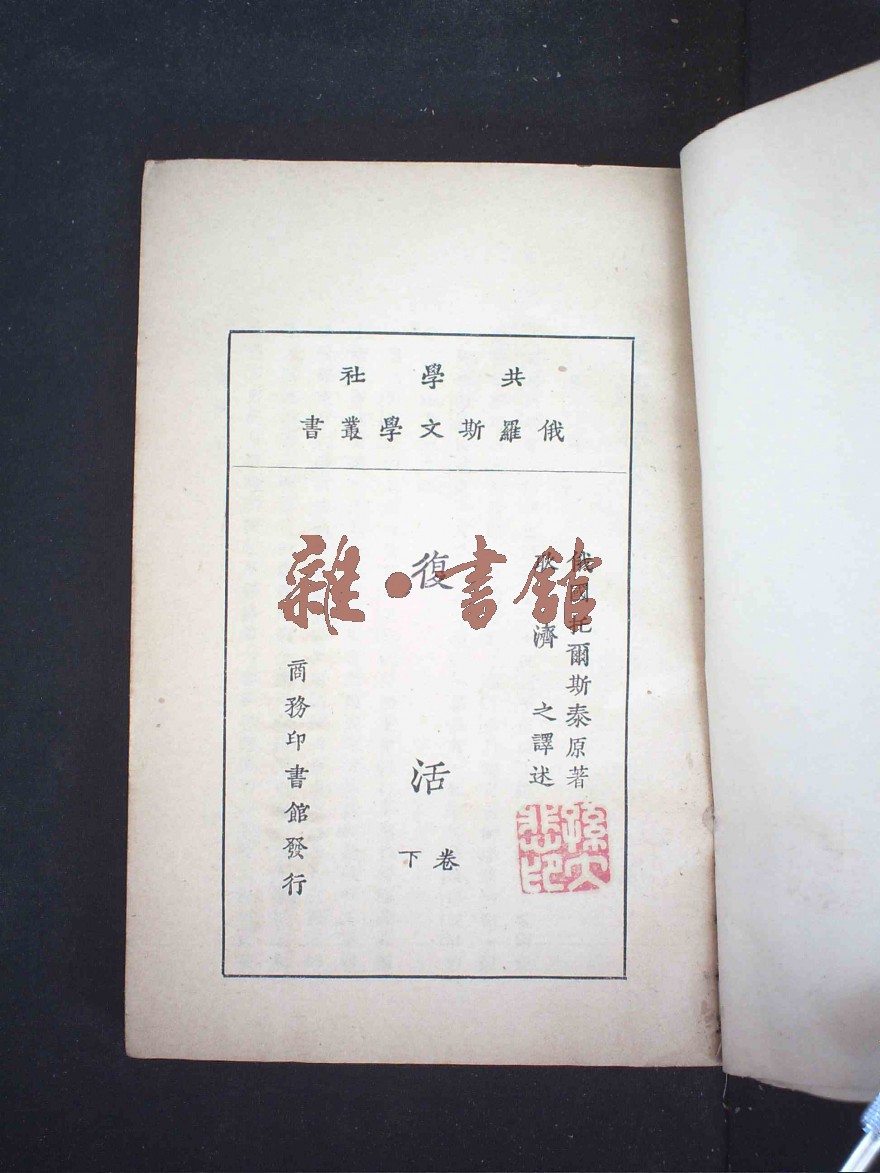 共學社
俄羅斯文學叢書
俄國托爾斯泰原著
耿濟之譯述
復活
卷下
商務印書館發行
雜·書館
孫大悲印